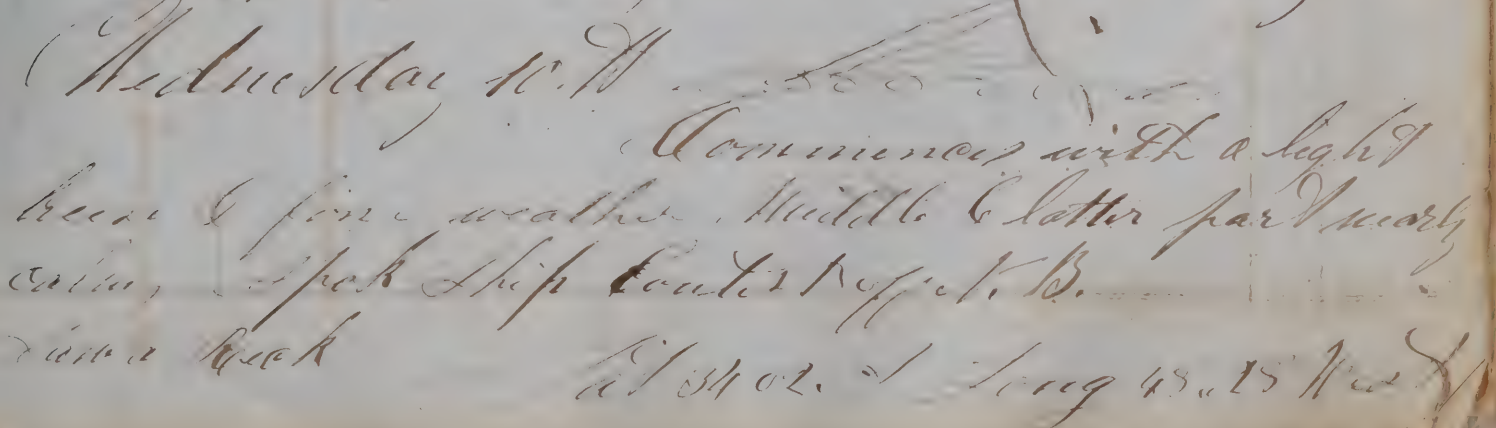 Wednesday 10th
Commences with a light
breeze & fine weather Middle & latter part nearly
calm, Spok Ship of N. B.
Lat 34 02. S Long 48..15 West